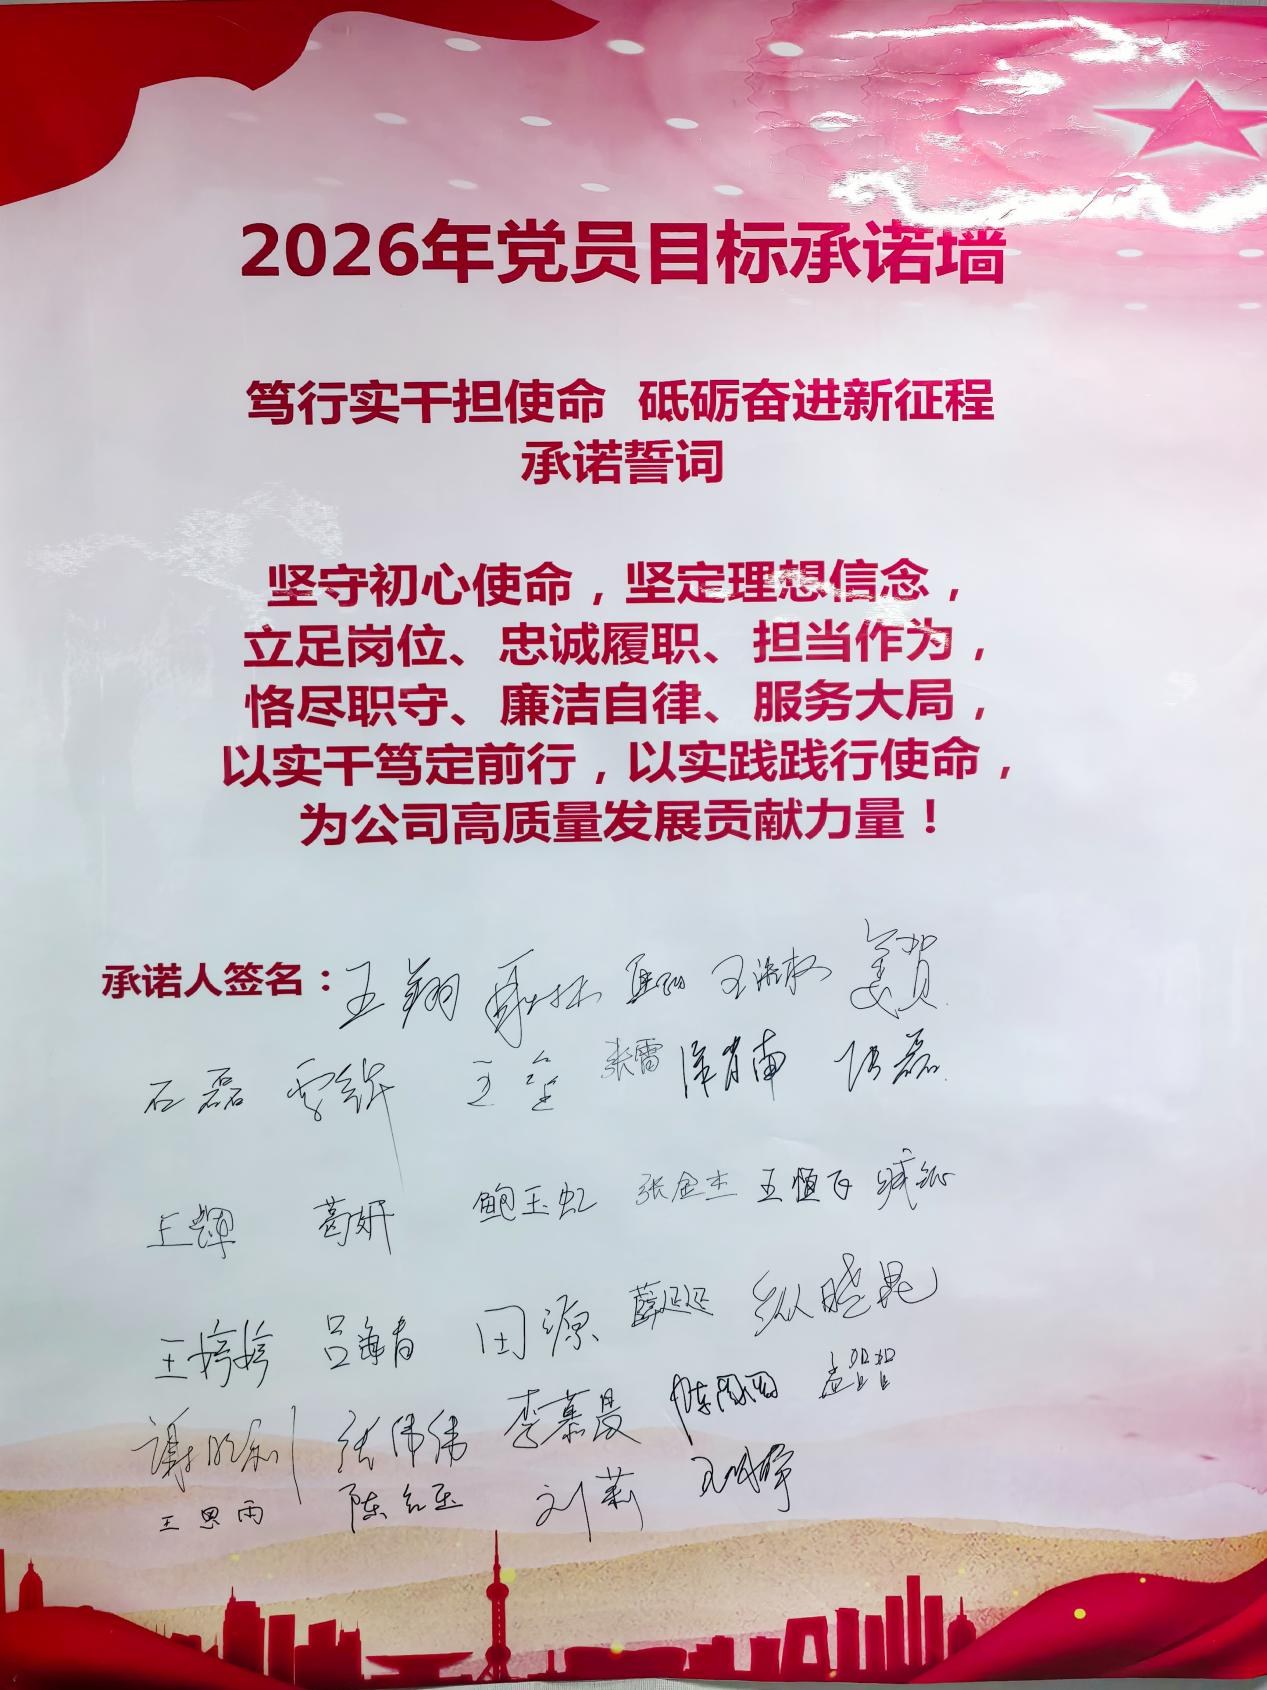 2026年党员目标承诺墙
笃行实干担使命 砥砺奋进新征程
承诺誓词
坚守初心使命，坚定理想信念，
立足岗位、忠诚履职、担当作为，
恪尽职守、廉洁自律、服务大局，
以实干笃定前行，以实践践行使命，
为公司高质量发展贡献力量！
承诺人签名：王翔 姜贺
石磊 张雷
王辉 葛妍 鲍玉虹 张金杰 王恒飞
王婷婷 田源 薛延延 纵晓昆
张伟伟 李慕晨
王思雨 陈红玉 刘莉